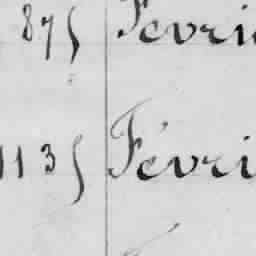 87 Févri
113 Févri